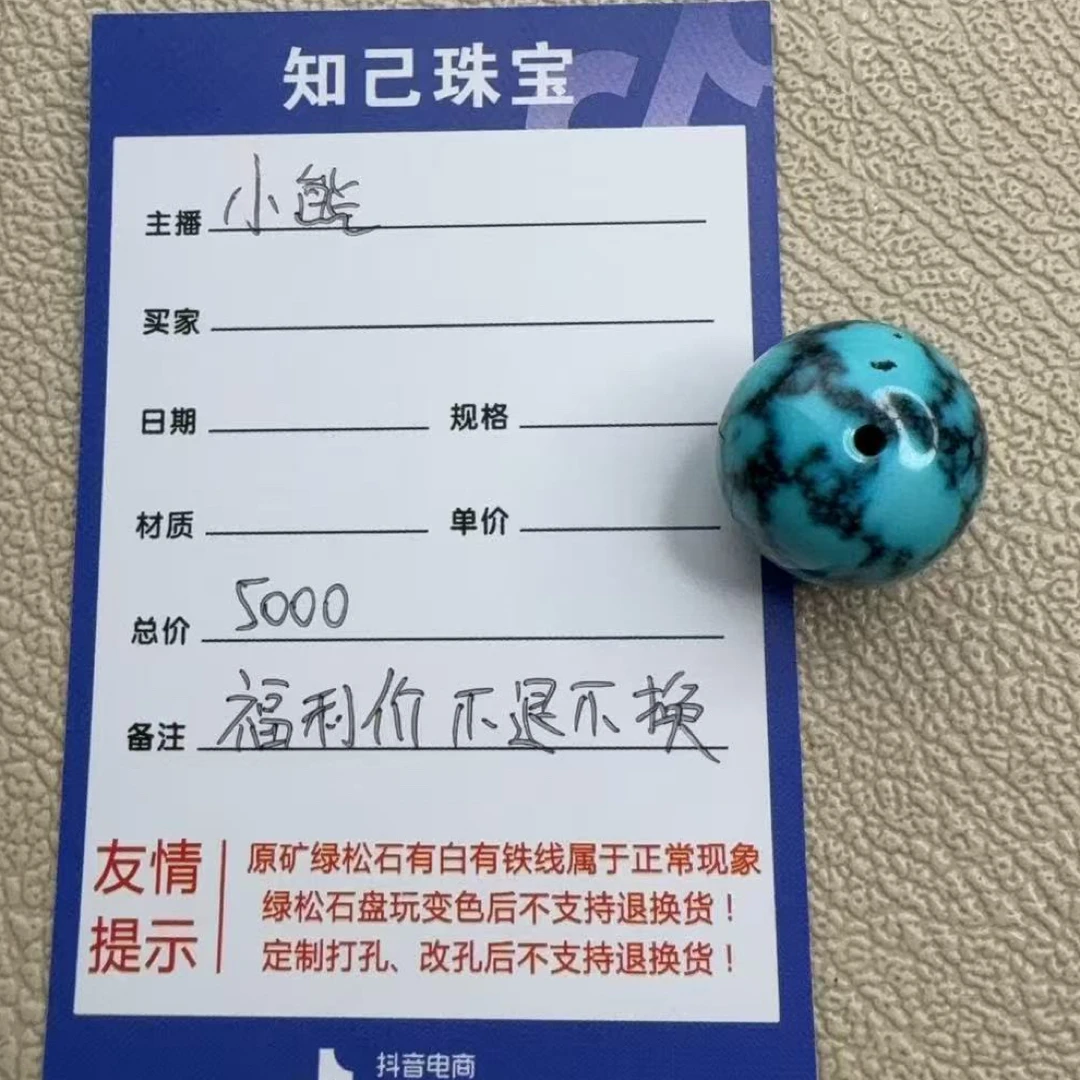 知己珠宝
主播 小熊
买家
日期 规格
材质 单价
总价 5000
备注 福利价不退不换
友情提示
原矿绿松石有白有铁线属于正常现象
绿松石盘玩变色后不支持退换货！
定制打孔、改孔后不支持退换货！
抖音电商